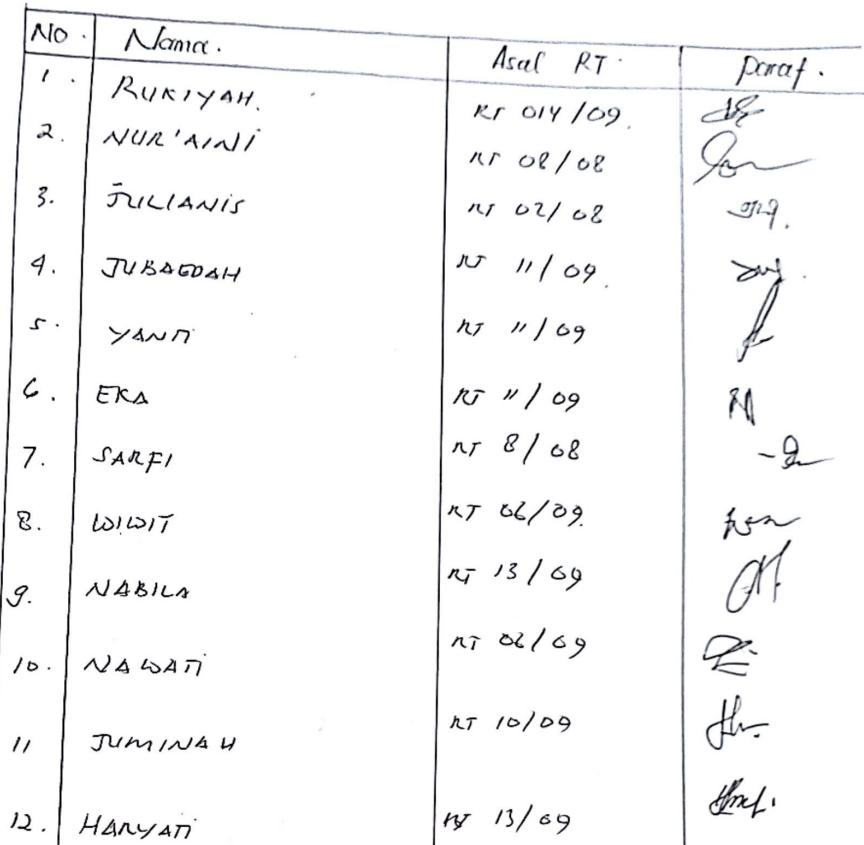 NO. Nama. Asal RT. Paraf.
1. RUKIYAH. RT 014/09.
2. NUR'AINI RT 08/08
3. JULIANIS RT 02/08
4. JUBAEDAH RT 11/09.
5. YANTI RT 11/09
6. EKA RT 11/09
7. SARFI RT 8/08
8. WIWIT RT 06/09.
9. NABILA RT 13/09
10. NAWATI RT 06/09
11 JUMINAH RT 10/09
12. HARYATI RT 13/09